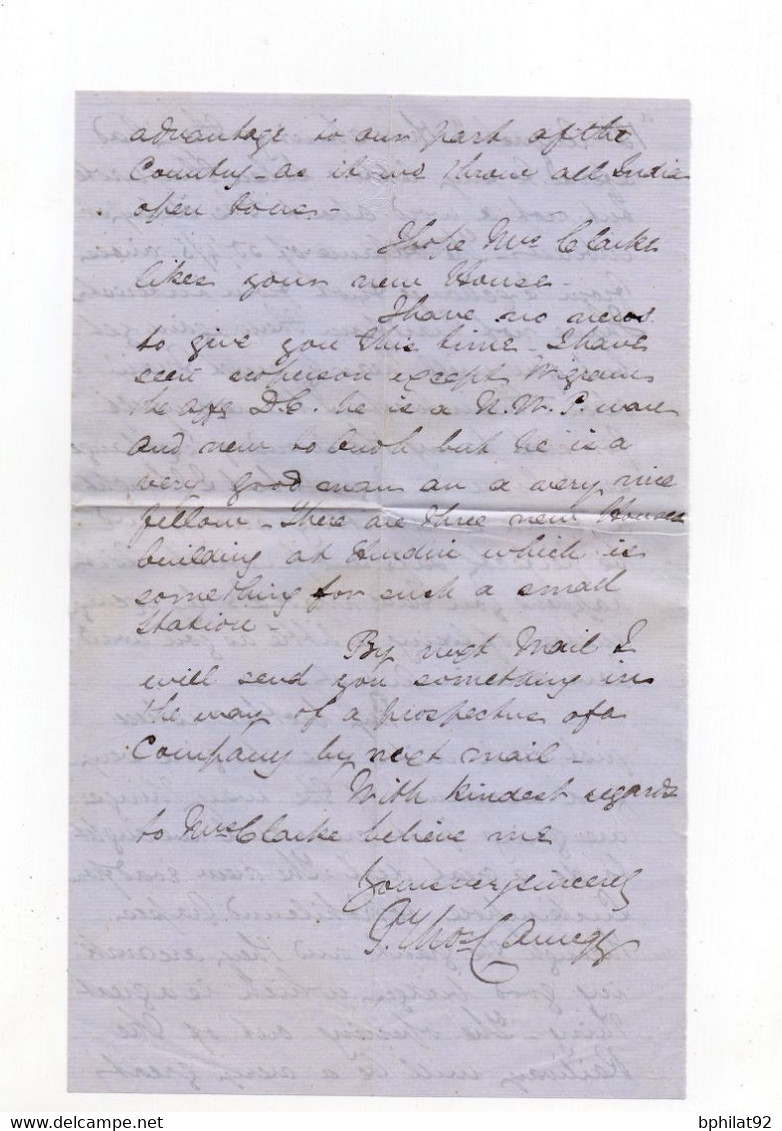 advantage to our part of the
Country - as it wd throw all India
open to us -
I hope Mrs Clarke
likes your new House -
I have no news
to give you this time - I have
seen no person except Wigram
the offg D.C. he is a N.W.P. man
and new to Oudh but he is a
very good man an a very nice
fellow - There are three new Houses
building at which is
something for such a small
station -
By next Mail I
will send you something in
the way of a prospectus of a
Company by next mail
With kindest regards
to Mrs Clarke believe me
Yours very sincerely
P. Thos Carnegy
delcampe.net
bphilat92